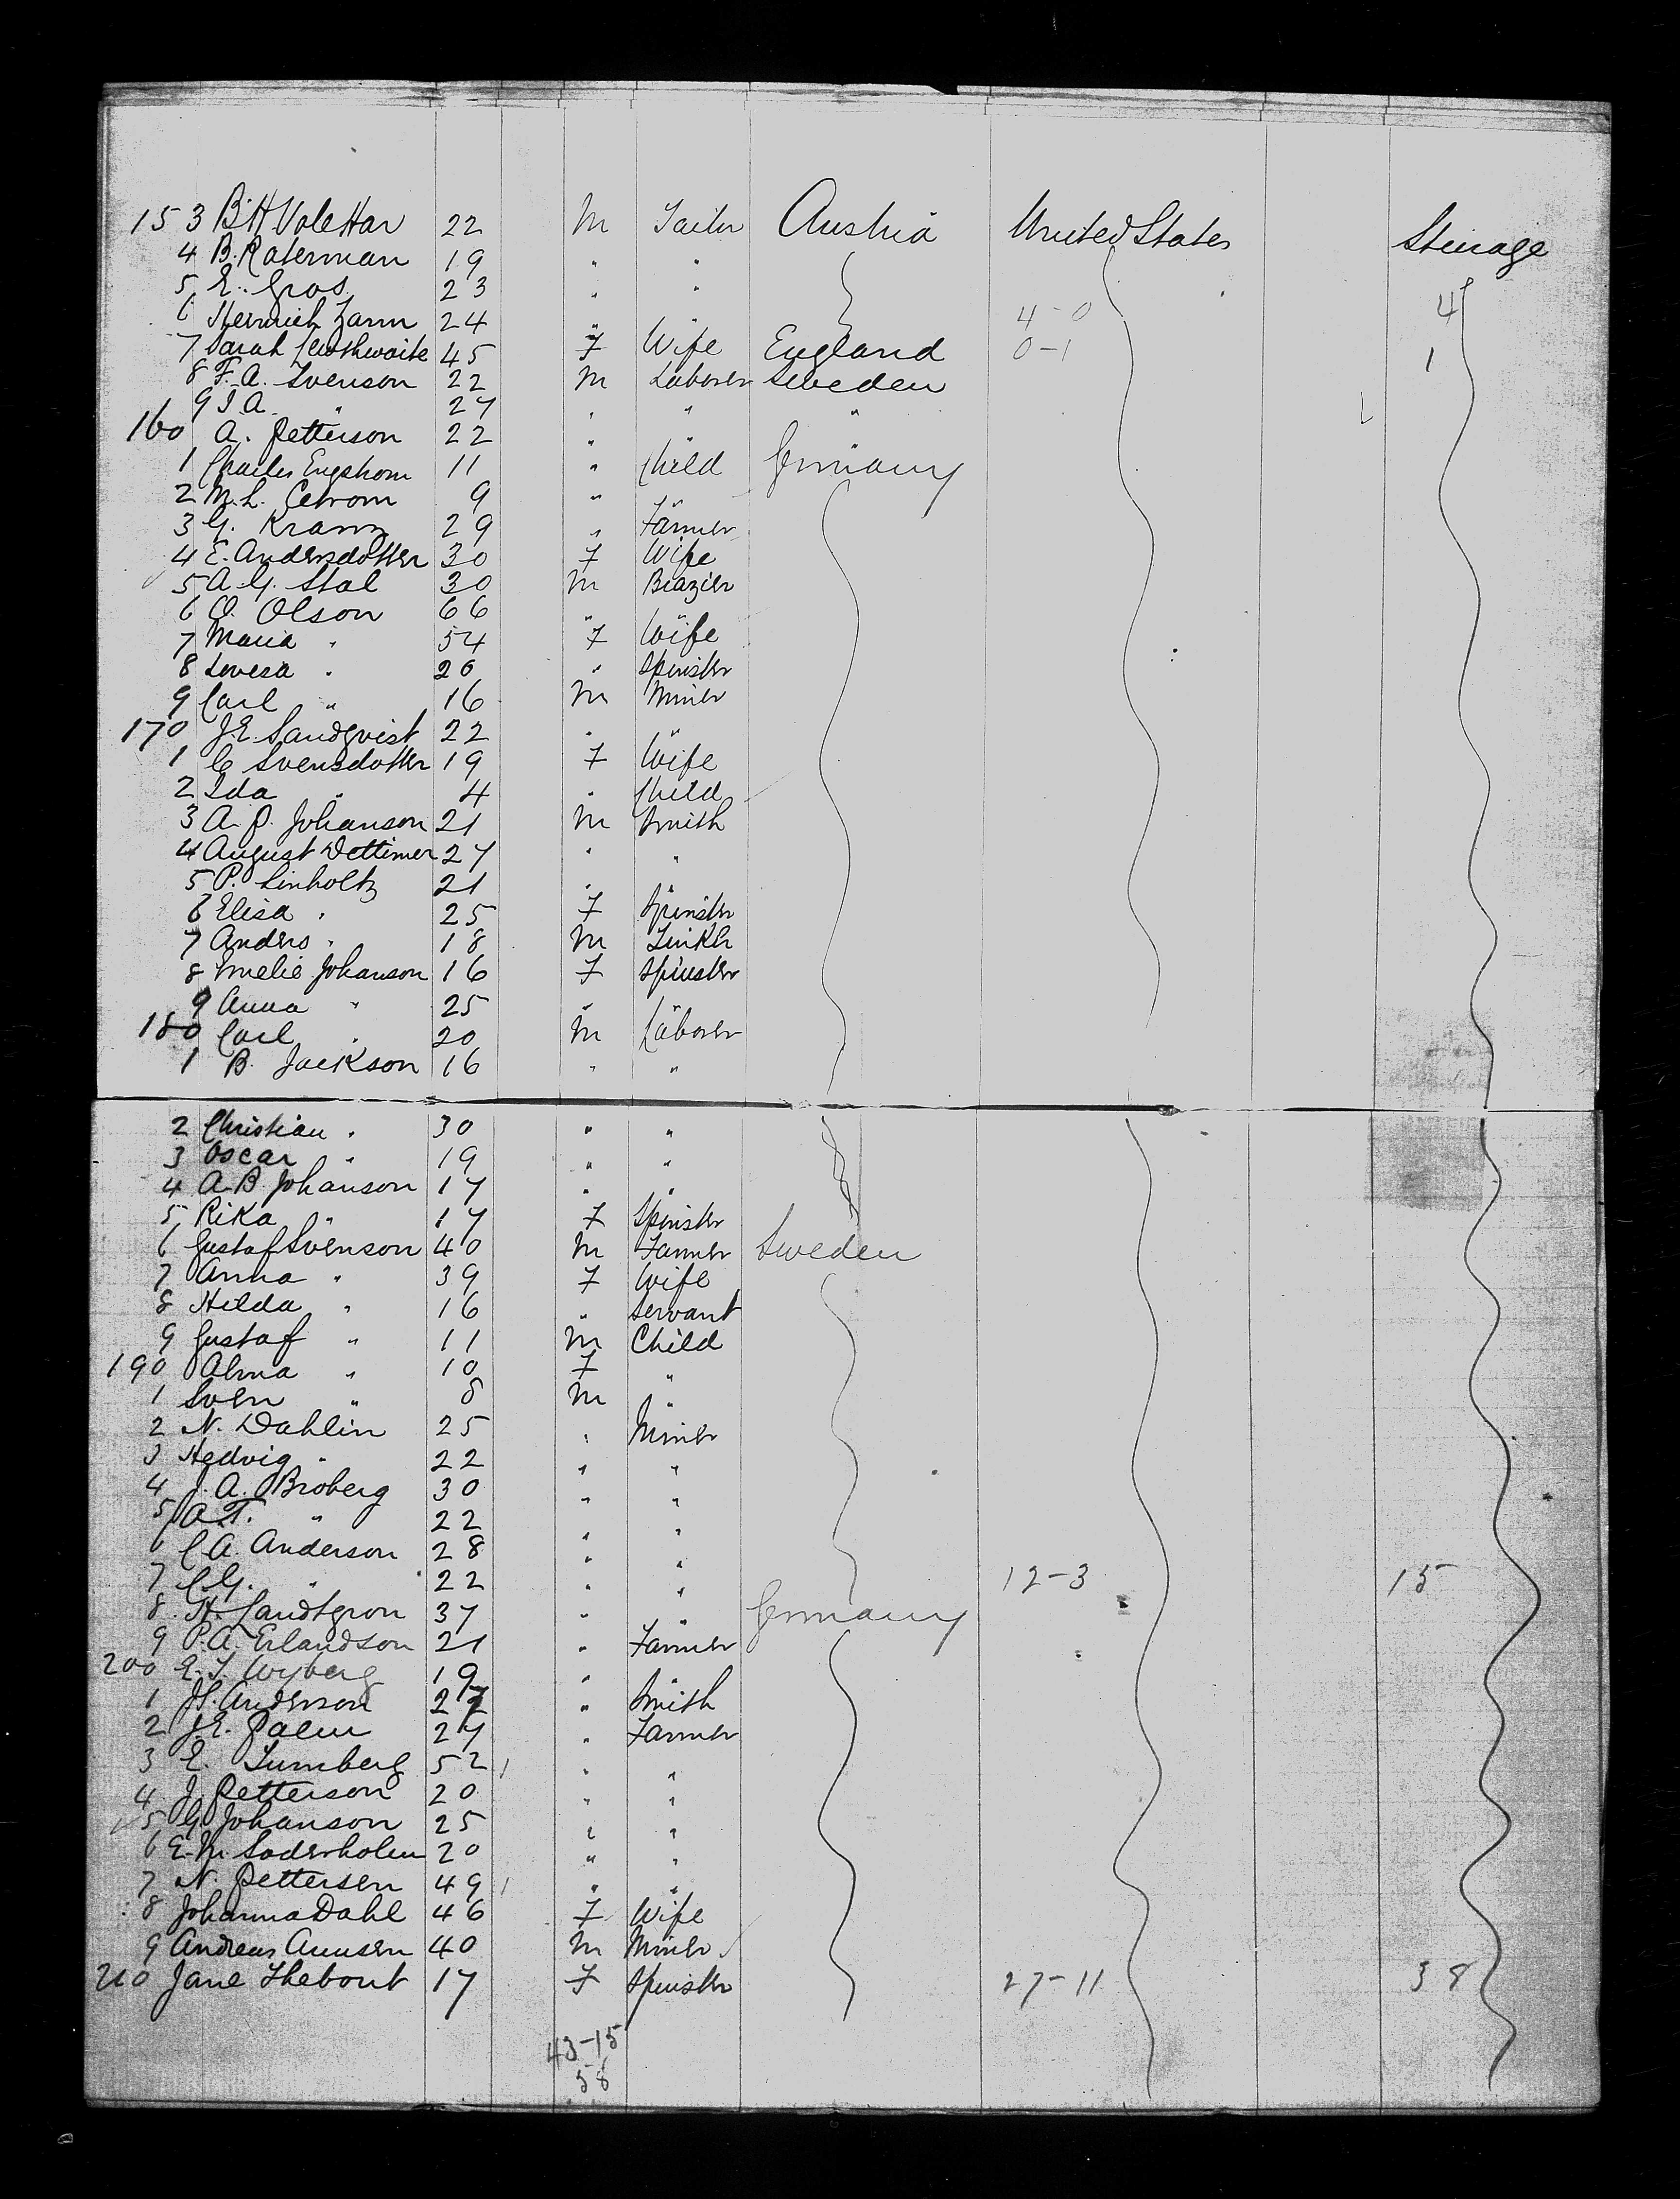 153 B.H. Volettar 22 M Tailor Austria United States Steerage
4 B. Raterman 19 " "
5 E. Gros 23 " "
6 Heinrich Zarm 24 " " 4-0 4
7 Sarah 45 F Wife England 0-1 1
8 F. A. Svenson 22 M Laborer Sweden
9 I. A. " 27 " " "
160 A. Petterson 22 " "
1 Charles Engstrom 11 " Child Germany
2 M. L. 9 " "
3 G. Kranz 29 " Farmer
4 E. Andersdotter 30 F Wife
5 A. G. Stal 30 M Brazier
6 O. Olson 66 " "
7 Maria " 54 F Wife
8 Lovesa " 20 " Spinster
9 Carl " 16 M Miner
170 J. E. Sandqvist 22 " "
1 C Svensdotter 19 F Wife
2 Ida " 4 " Child
3 A. P. Johanson 21 M Smith
4 August Dettimer 27 " "
5 P. Linholtz 21 " "
6 Elisa " 25 F Spinster
7 Anders " 18 M
8 Emelie Johanson 16 F Spinster
9 Anna " 25 " "
180 Carl " 20 M Laborer
1 B. Jackson 16 " "
2 Christian " 30 " "
3 Oscar " 19 " "
4 A. B. Johanson 17 " "
5 Rika " 17 F Spinster
6 Gustaf Svenson 40 M Farmer Sweden
7 Anna " 39 F Wife
8 Hilda " 16 " Servant
9 Gustaf " 11 M Child
190 Alma " 10 F "
1 Sven " 8 M "
2 N. Dahlin 25 " Miner
3 Hedvig " 22 " "
4 J. A. Broberg 30 " "
5 A. T. " 22 " "
6 C. A. Anderson 28 " "
7 C. G. " 22 " " 12-3 15
8 H. 37 " " Germany
9 P. A. Erlandson 21 " Farmer
200 E. T. Wyberg 19 " "
1 Anderson 22 " Smith
2 J. E. Palm 27 " Farmer
3 E. 52 " "
4 J. Petterson 20 " "
5 G. Johanson 25 " "
6 E. M. Soderholm 20 " "
7 N. Pettersen 49 " "
8 Johanna Dahl 46 F Wife
9 Andreas 40 M Miner
210 Jane Thebout 17 F Spinster 27-11 38
43-15
58